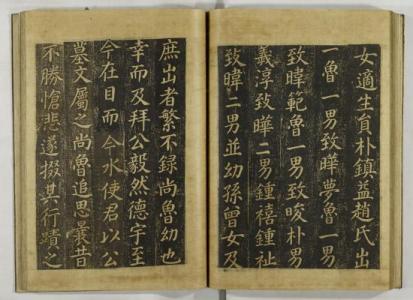 女適生員朴鎮益趙氏出
一魯一男致曄夢魯一男
致暐範魯一男致晙朴男
義淳致曄二男鍾禧鍾祉
致暐二男並幼孫曾女及
庶出者繁不録尚魯幼也
幸而及拜公毅然德宇至
今在目而今水使君以公
墓文屬之尚魯追思曩昔
不勝愴悲遂掇其行蹟之